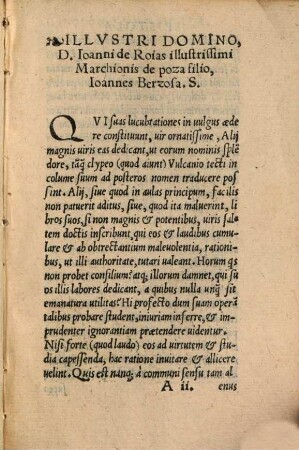 ILLVSTRI DOMINO,
D. Ioanni de Roias illustrissimi
Marchionis de poza filio,
Ioannes Berzosa. S.
QVI suas lucubrationes in uulgus ædere
re constituunt, uir ornatissime, Alij
magnis uiris eas dedicant, ut eorum nominis splē
dore, tāq́ clypeo (quod aiunt) Vulcanio tecti in
colume suum ad posteros nomen traducere pos
sint. Alij, siue quod in aulas principum, facilis
non patuerit aditus, siue, quod ita maluerint, li
bros suos, si non magnis & potentibus, uiris sal
tem doctis inscribunt, qui eos & laudibus cumu
lare & ab obtrectantum maleuolentia, rationi
bus, ut illi authoritate, tutari ualeant. Horum qs
non probet consilium? atq; illorum damnet, qui su
os illis labores dedicant, a quibus nulla unq̄ sit
emanatura utilitas? Hi profecto dum suam operā
talibus probare student, iniuriam inferre, & im
prudenter ignorantiam prætendere uidentur.
Nisi forte (quod laudo) eos ad uirtutem & stu
dia capessenda, hac ratione inuitare & allicere
uelint. Quis est nanq; a communi sensu tam al
A ii. enus